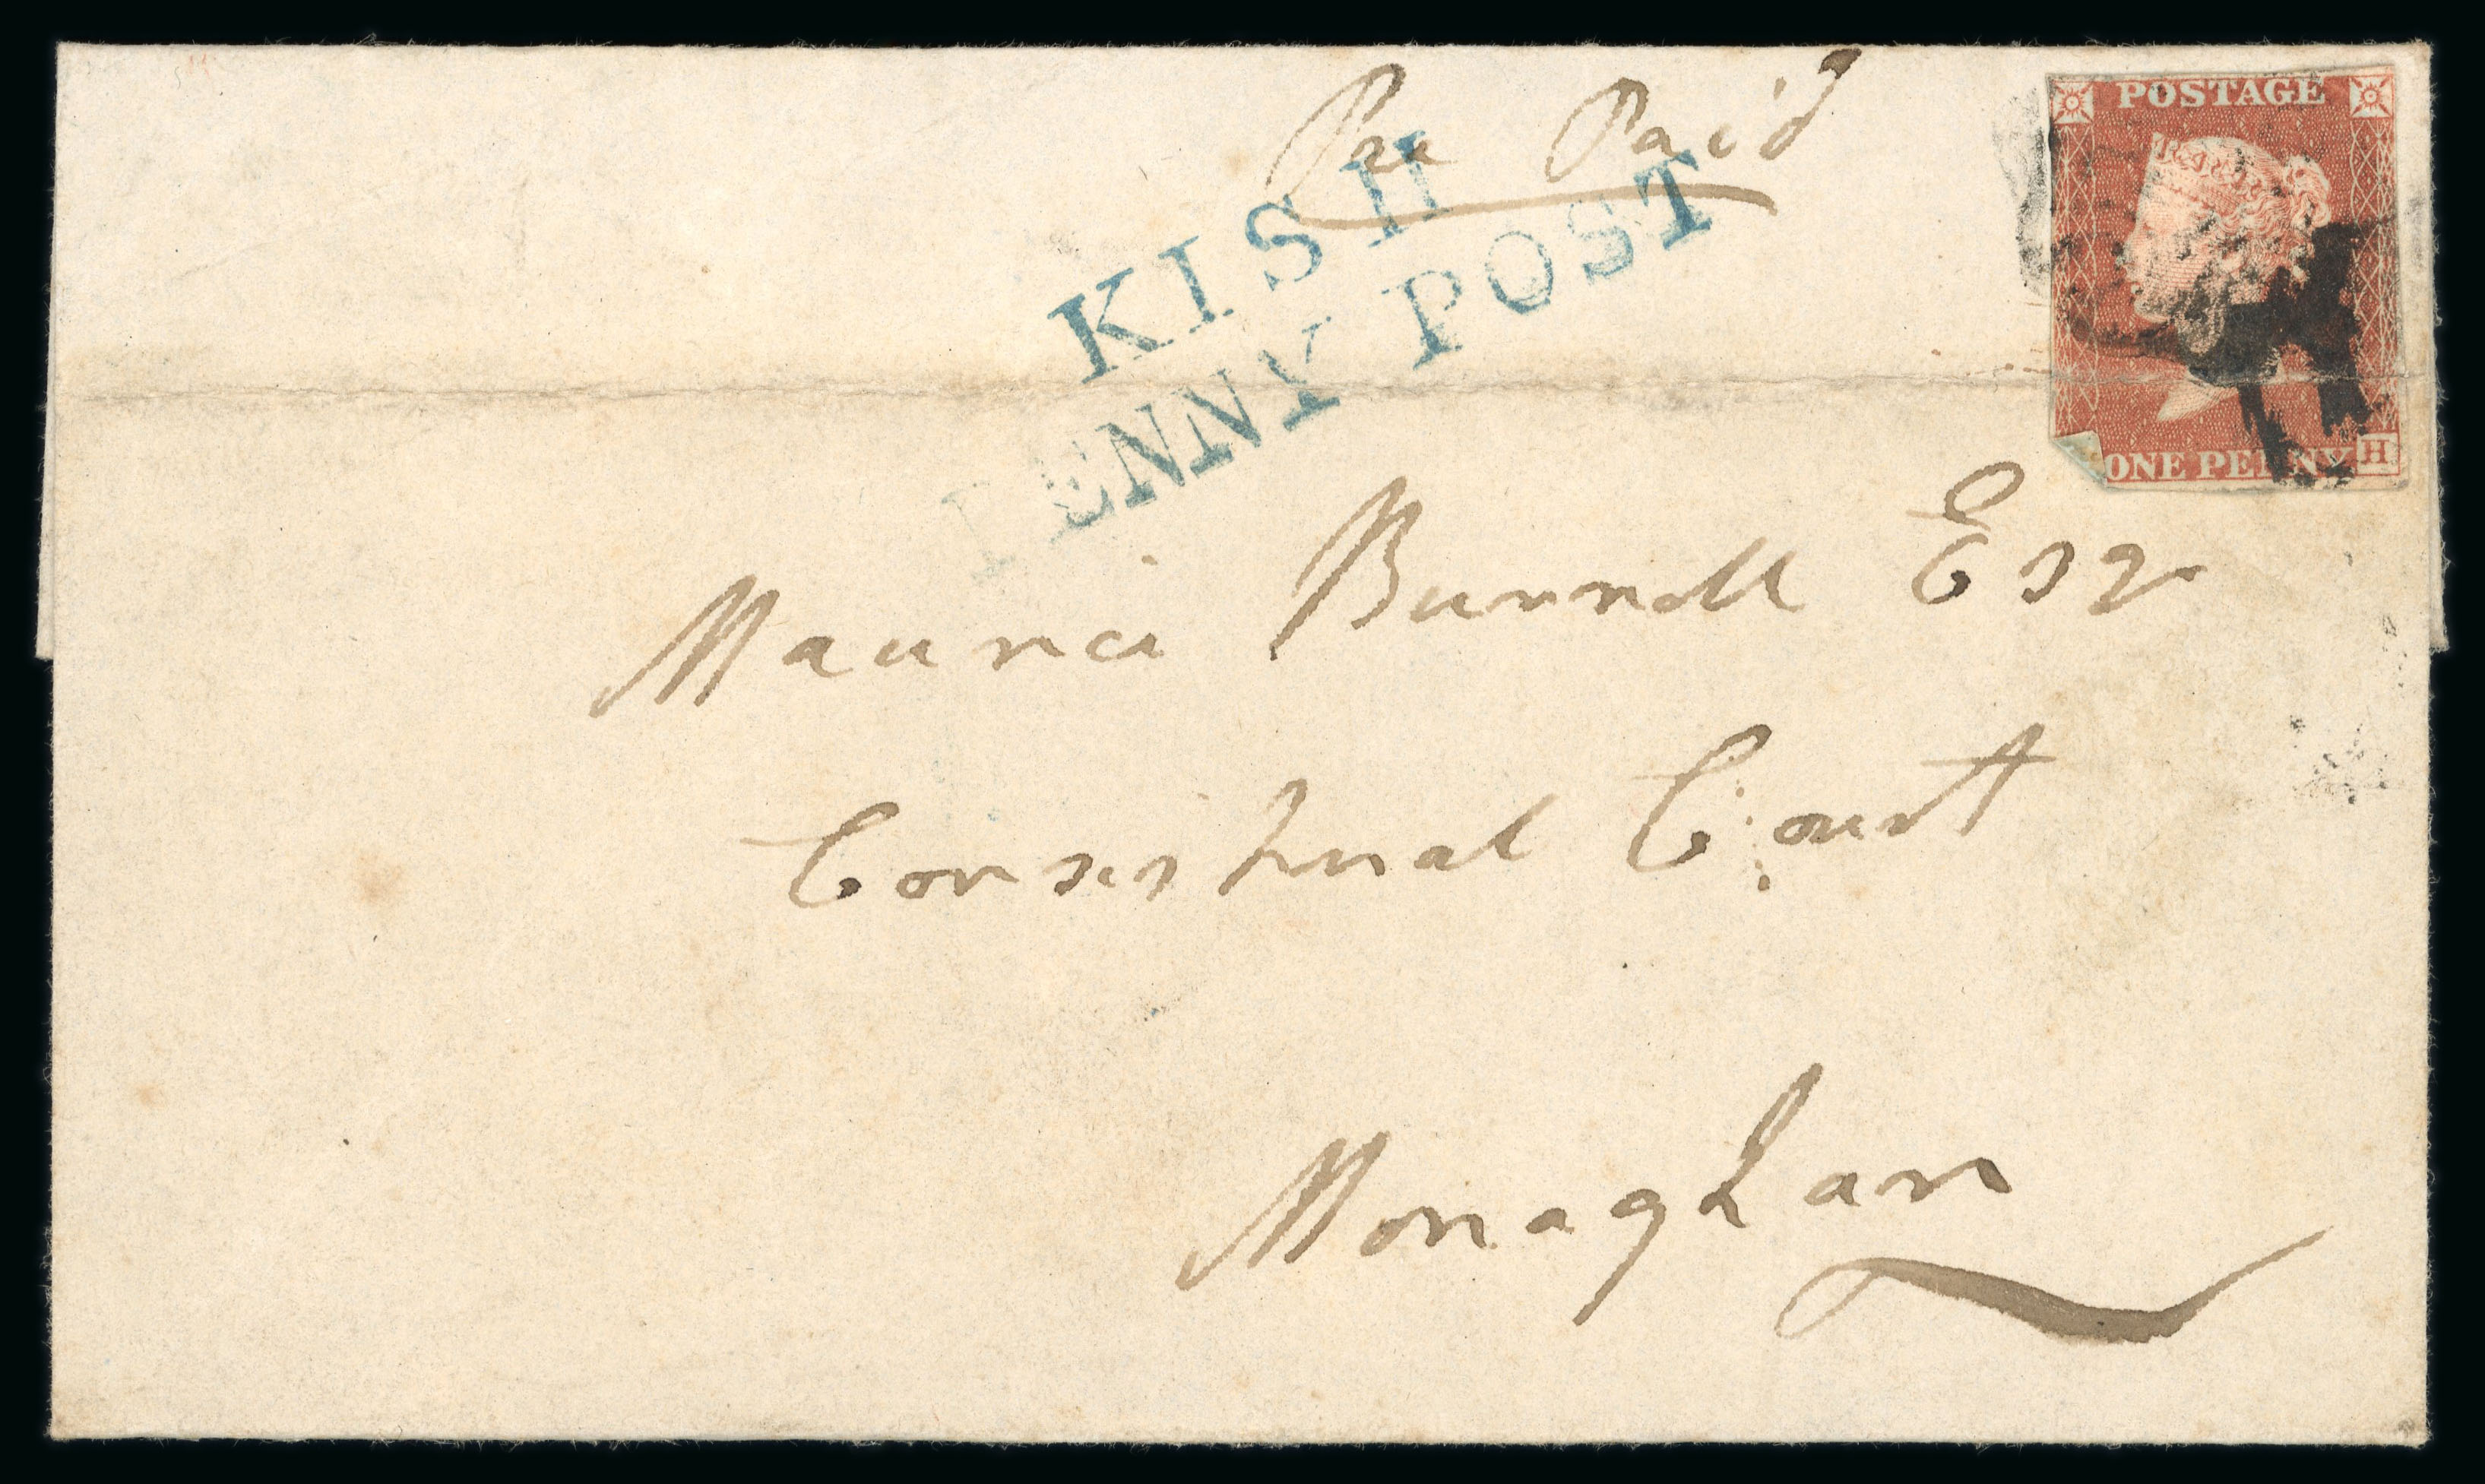 Pre Paid
POSTAGE
KISH
PENNY POST
ONE PENNY H
Maurice Esq
Consistorial Court
Monaghan